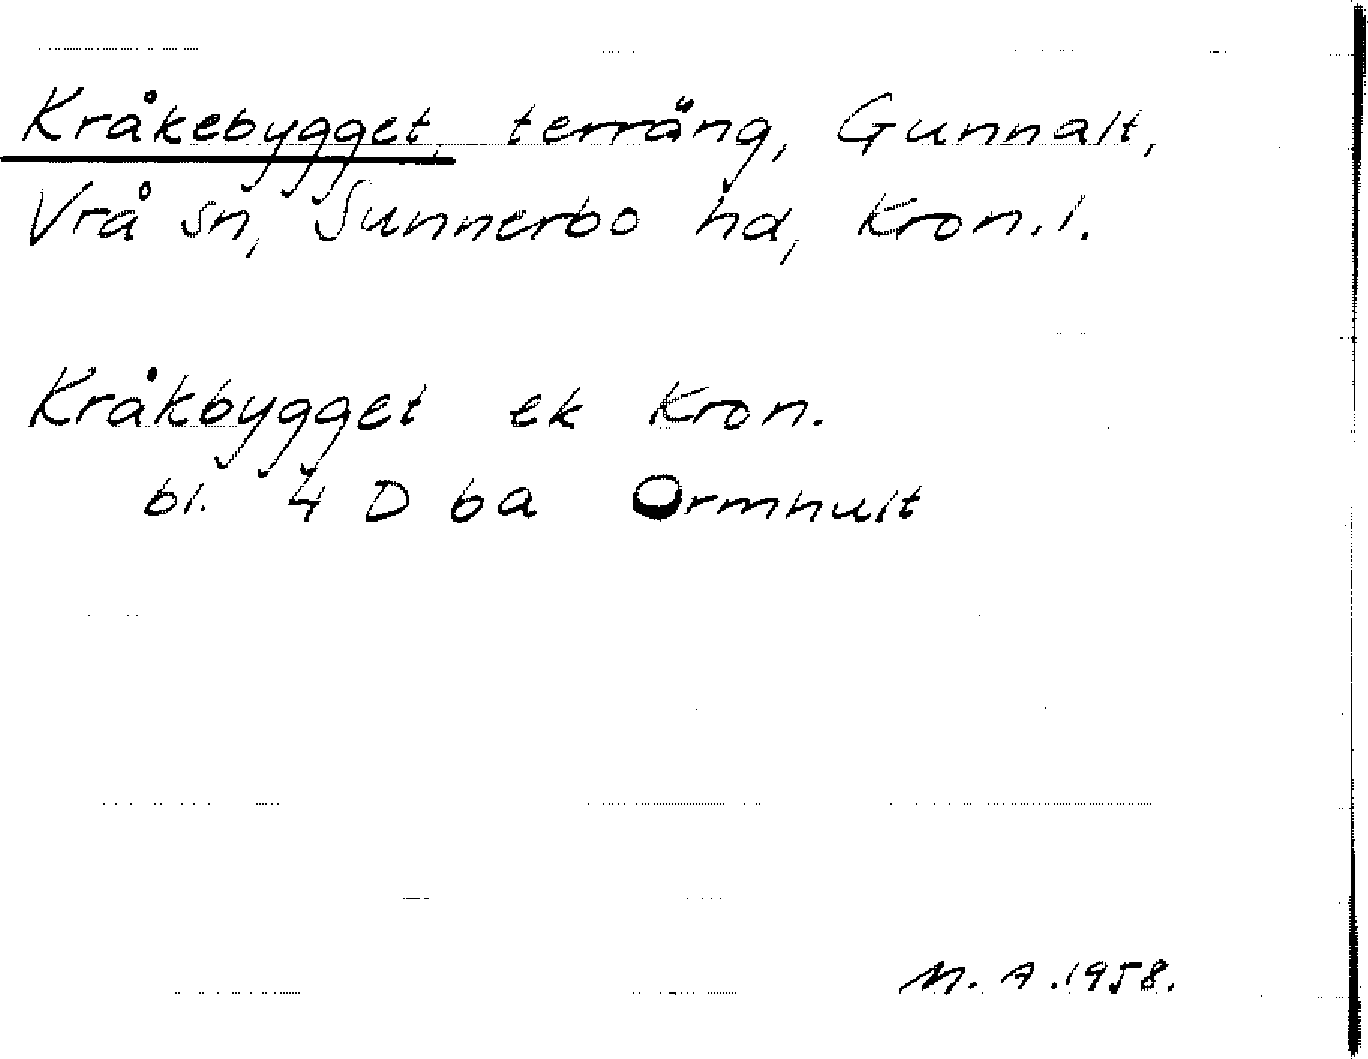 Kråkebygget, terräng, Gunnalt,
Vrå sn, Sunnerbo hd, Kron.l.
Kråkbygget ek Kron.
bl. 4 D ba Ormhult
M.A.1958.